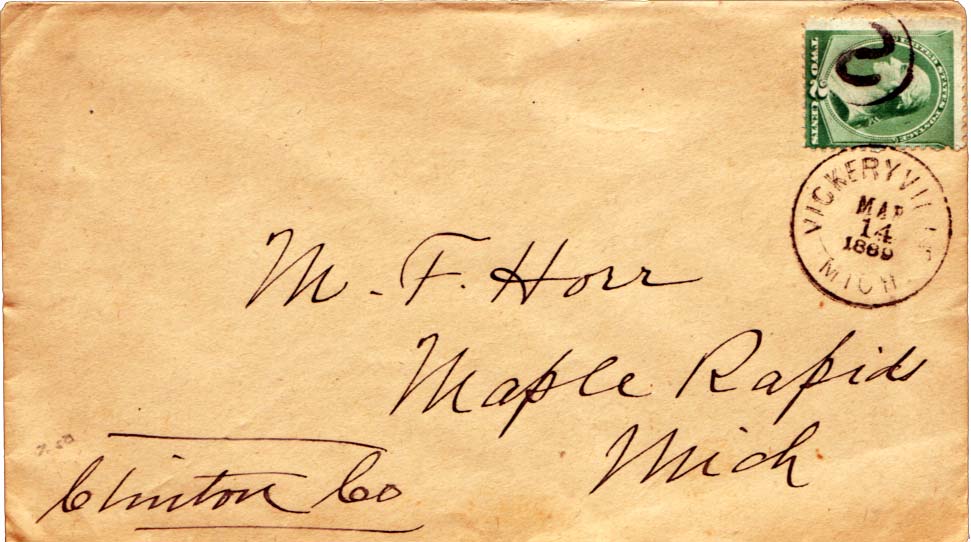 UNITED STATES POSTAGE
TWO 2 CENTS
VICKERYVILLE
MAR
14
1889
MICH.
M. F. Horr
Maple Rapids
Mich
Clinton Co
7.50